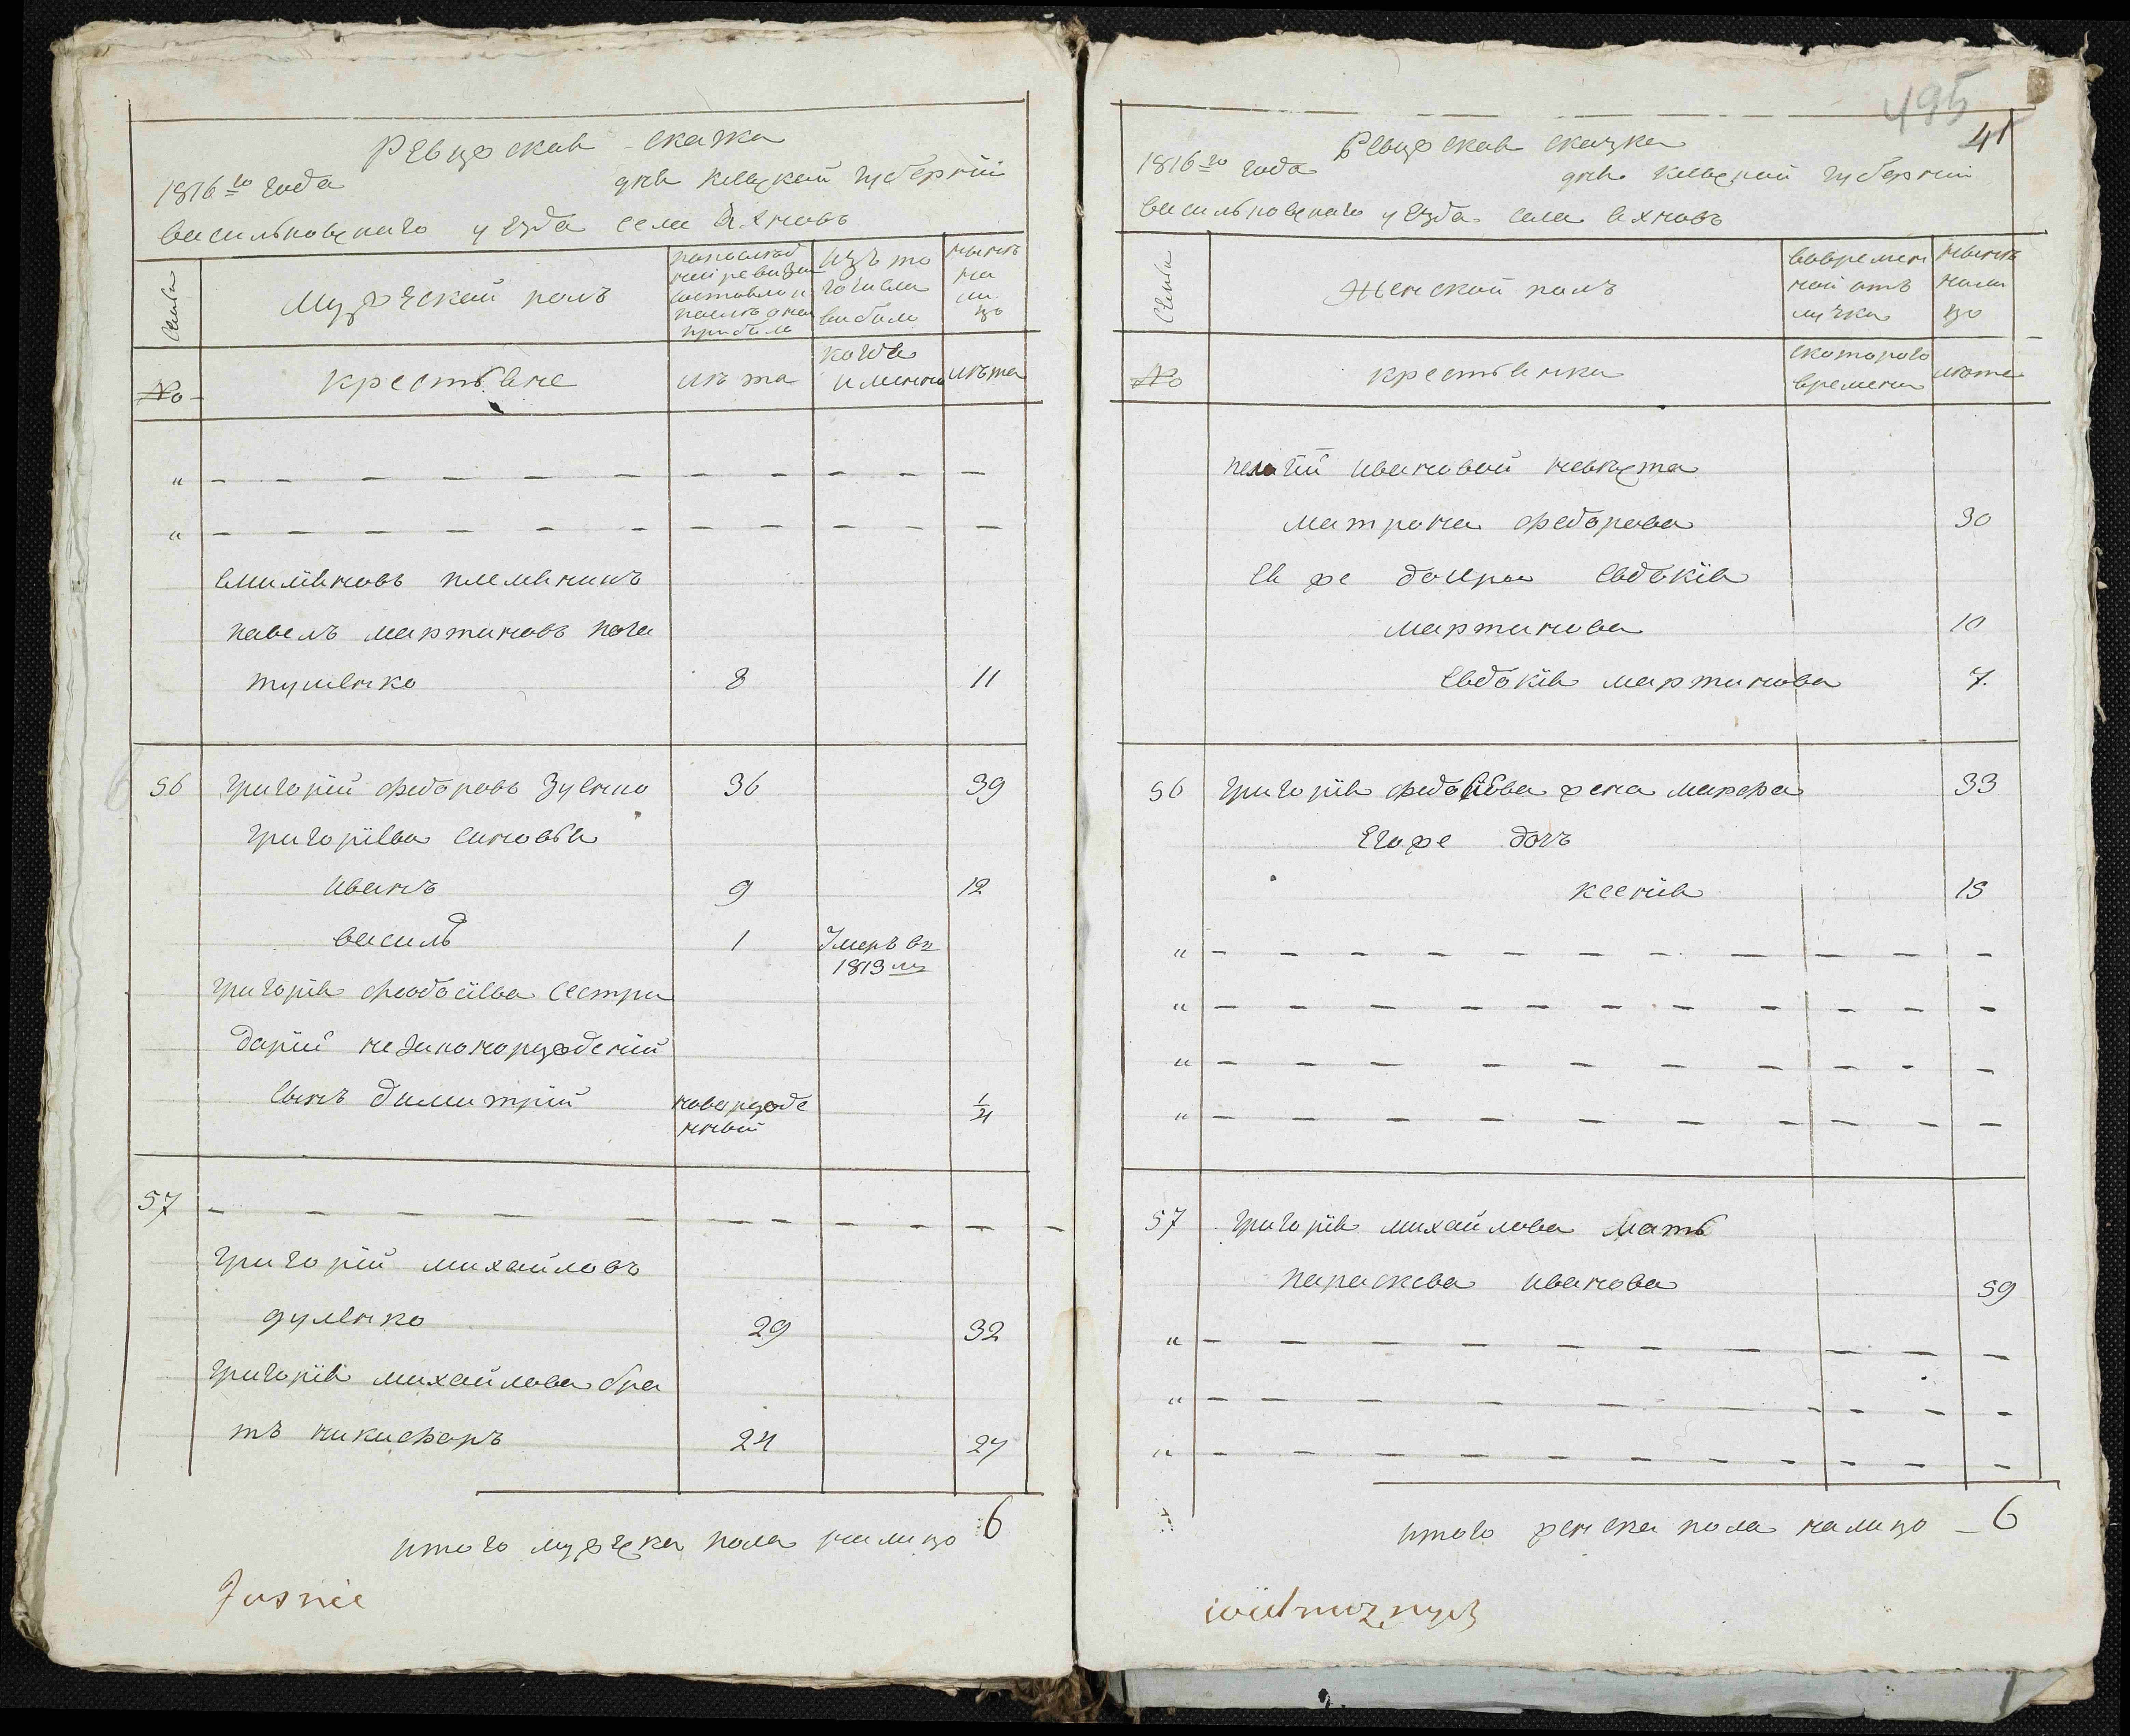 Ревизская сказка
1816го года дня Киевской губернии
васильковского уезда села Яхновъ
Семьи
Мужеской полъ
по последней ревизии состояло и после оной прибыло
изъ того числа выбыло
ныне на лицо
№
крестьяне
лѣта
когда именно
лѣта
" — — — — — — — — — —
" — — — — — — — — — —
племянникъ
павелъ мартиновъ
8 11
56 григорій федоровъ 36 39
григорія сыновья
иванъ 9 12
василь 1 умеръ въ 1813мъ
григорія феодосіева сестри
даріи незаконорожденій
сынъ димитрій новорожденный 1/4
57 — — — — — — — — — —
григорій михайловъ
дуленко 29 32
григорія михайлова бра
тъ никифоръ 24 27
итого мужеска пола на лицо 6
Jasnie
495
41
Ревизская сказка
1816го года дня киевской губерніи
васильковского уезда села яхновъ
Семьи
Женской полъ
во временной отлучке
ныне на лицо
№
крестьянки
с которого времени
лѣта
пелагіи ивановой невѣстка
матрона федорова 30
ея же дочери евдокія
мартинова 10
Евдокія мартинова 7
56 григорія жена марфа 33
Его же дочъ
ксенія 15
" — — — — — — — — — —
" — — — — — — — — — —
" — — — — — — — — — —
" — — — — — — — — — —
57 григорія михайлова мать
параскева иванова 59
" — — — — — — — — —
" — — — — — — — — —
" — — — — — — — — —
итого женска пола на лицо — 6